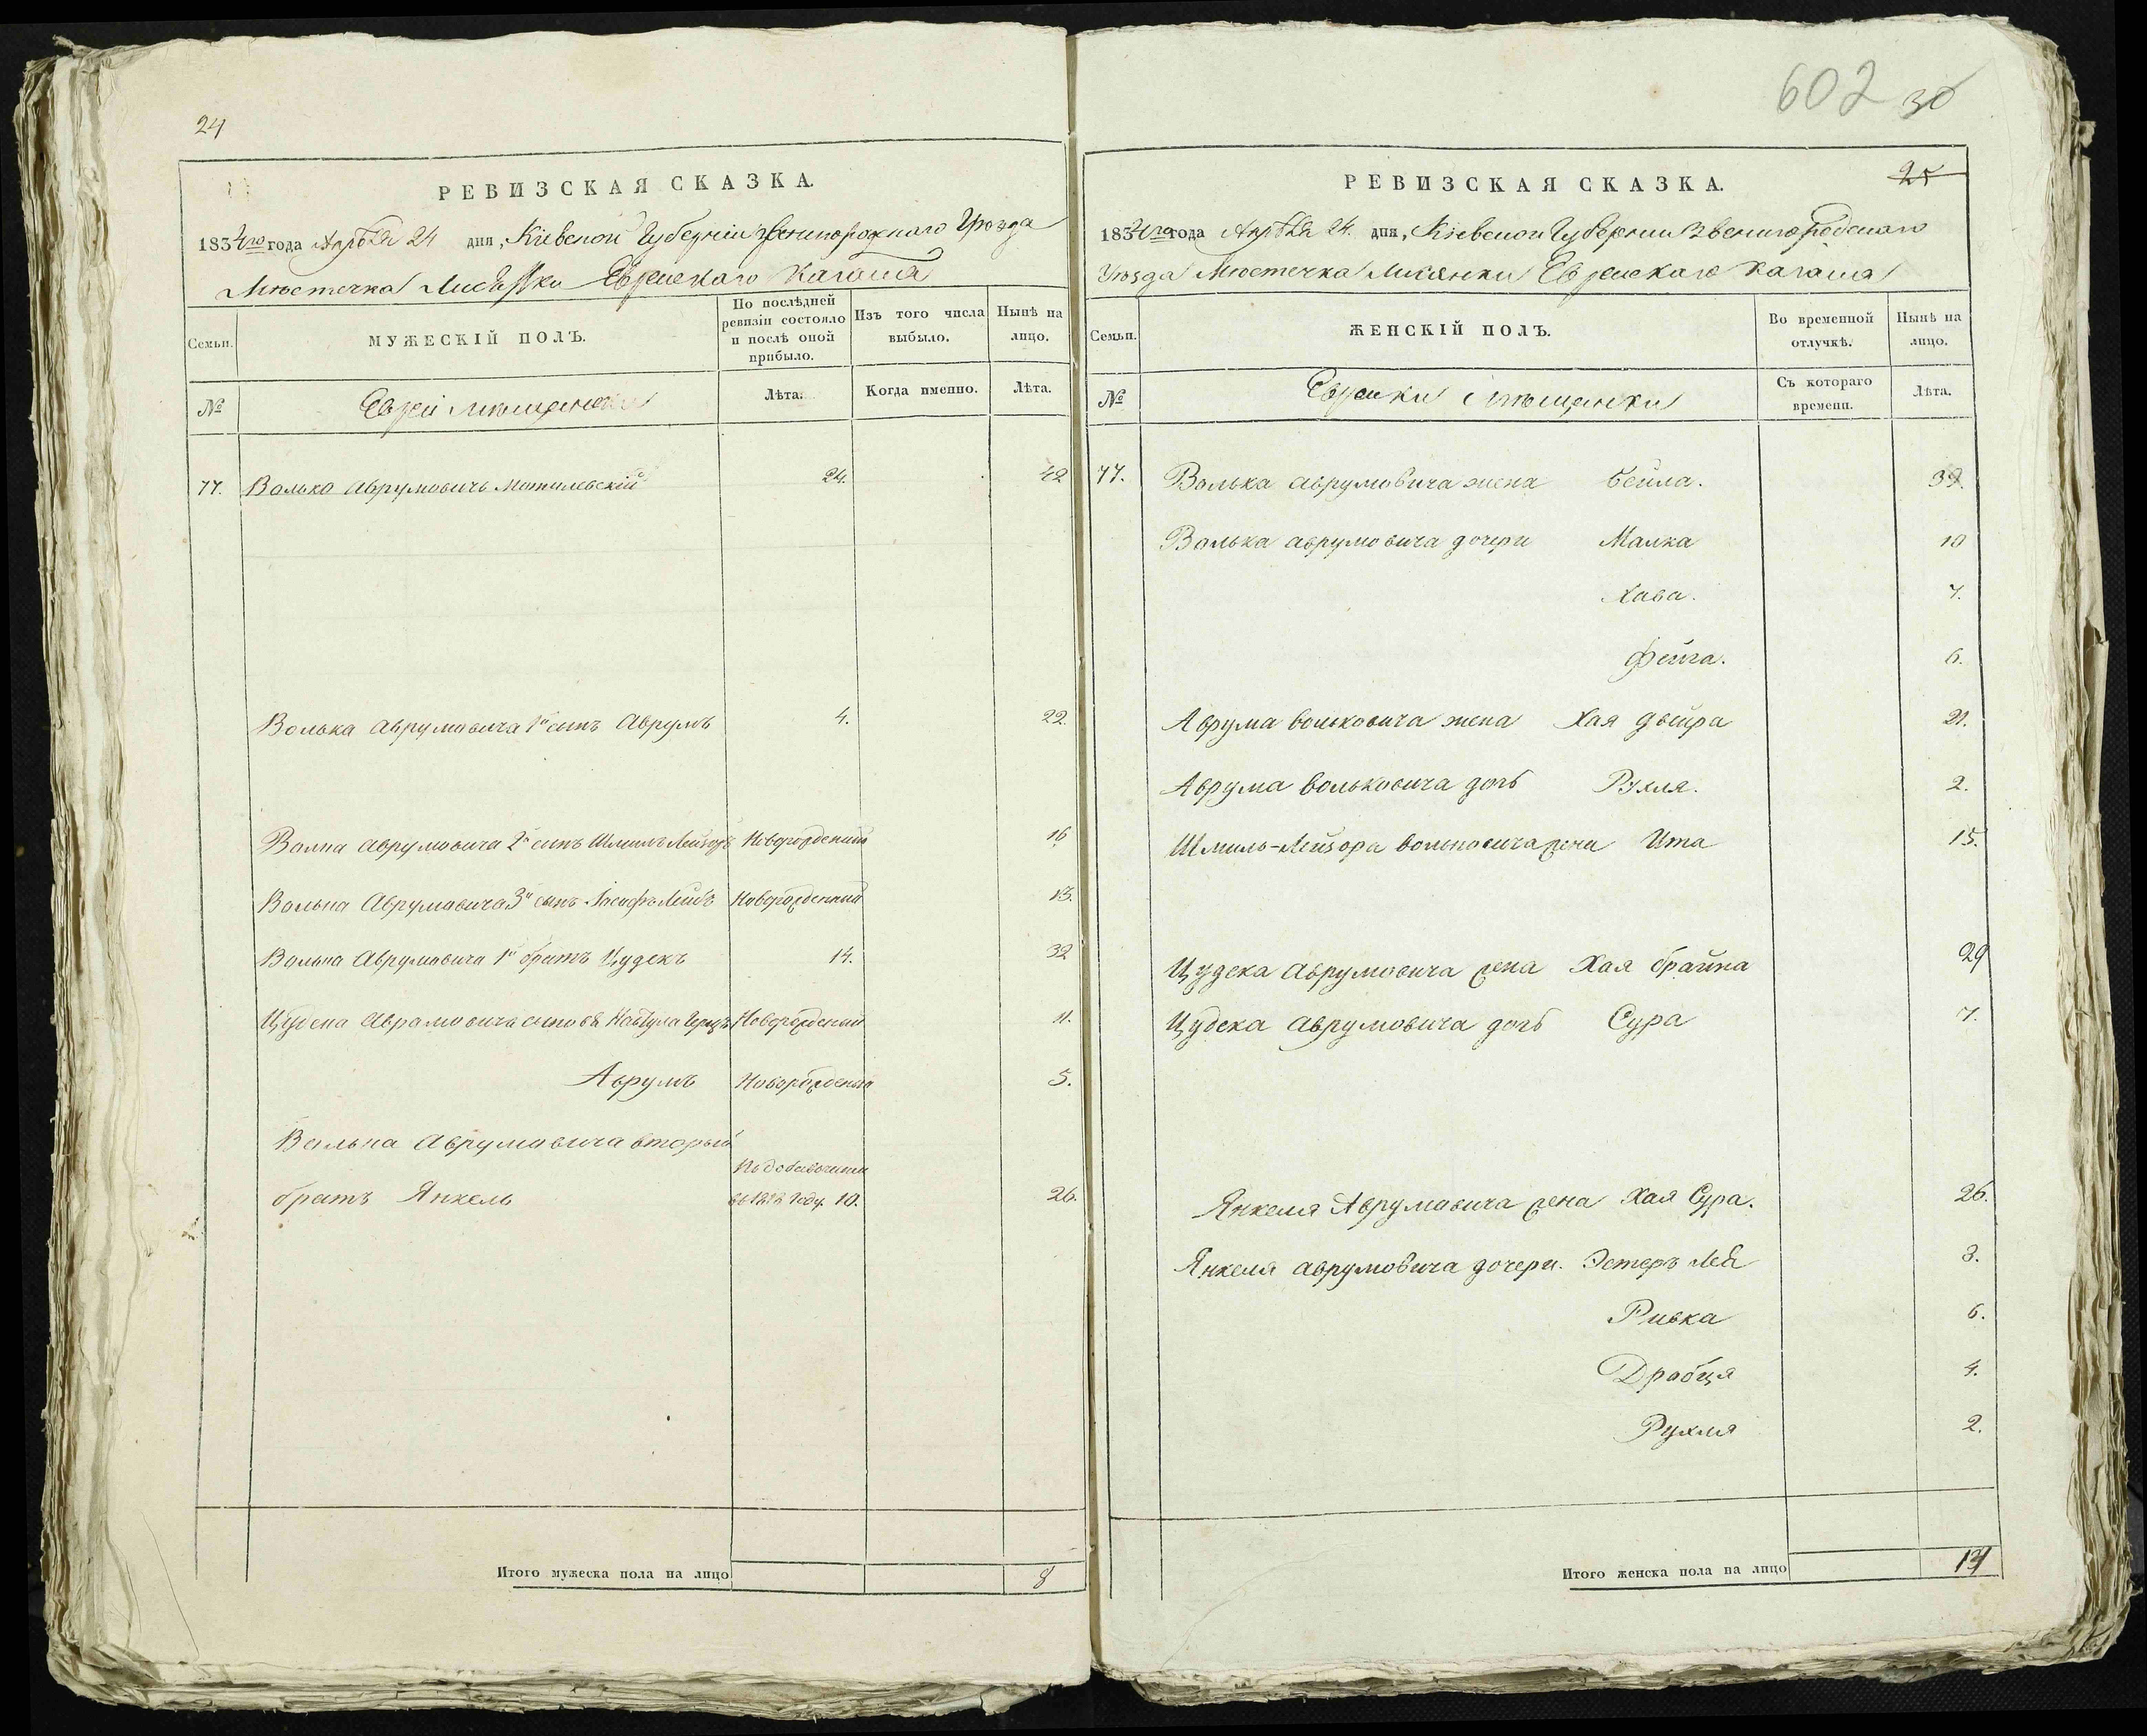 24
РЕВИЗСКАЯ СКАЗКА.
1834го года Апреля 24 дня, Кіевской Губерніи Звенигородскаго Уѣзда
Мѣстечка Лисянки Еврейскаго Кагала
Семьи.
МУЖЕСКІЙ ПОЛЪ.
По послѣдней ревизіи состояло и послѣ оной прибыло.
Изъ того числа выбыло.
Нынѣ на лицо.
№
Евреи мещане
Лѣта.
Когда именно.
Лѣта.
77. Волько Аврумовичь Могилевскій 24. 42
Волька Аврумовича 1й сынъ Аврумъ 4. 22.
Волька Аврумовича 2й сынъ Шмиль Лейзоръ Новорожденный 16
Волька Аврумовича 3й сынъ Іосифъ Лейбъ Новорожденный 13.
Волька Аврумовича 1й братъ Цудекъ 14. 32
Цудека Аврамовича сыновя Нафтула Герцъ Новорожденый 11.
Аврумъ Новорожденый 5.
Волька Аврумовича вторый
братъ Янкель
въ 1818 году. 10. 26.
Итого мужеска пола на лицо 8
602 30
25
РЕВИЗСКАЯ СКАЗКА.
1834го года Апреля 24. дня, Кіевской Губерніи Звенигородскаго
Уѣзда Мѣстечка Лисянки Еврейскаго Кагала
Семьи.
ЖЕНСКІЙ ПОЛЪ.
Во временной отлучкѣ.
Нынѣ на лицо.
№
Еврейки мѣщанки
Съ котораго времени.
Лѣта.
77. Волька Аврумовича жена Бейла. 39.
Волька Аврумовича дочери Малка 10
Хава. 7.
Фейга. 6.
Аврума Вольковича жена Хая Двейра 21.
Аврума Вольковича дочь Рухля. 2.
Шмиль-Лейзора Вольковича жена Ита 15.
Цудека Аврумовича жена Хая Брайна 29
Цудека Аврумовича дочь Сура 7.
Янкеля Аврумовича жена Хая Сура. 26.
Янкеля Аврумовича дочери. Эстеръ Лея 8.
Ривка 6.
Драбця 4.
Рухля 2.
Итого женска пола на лицо